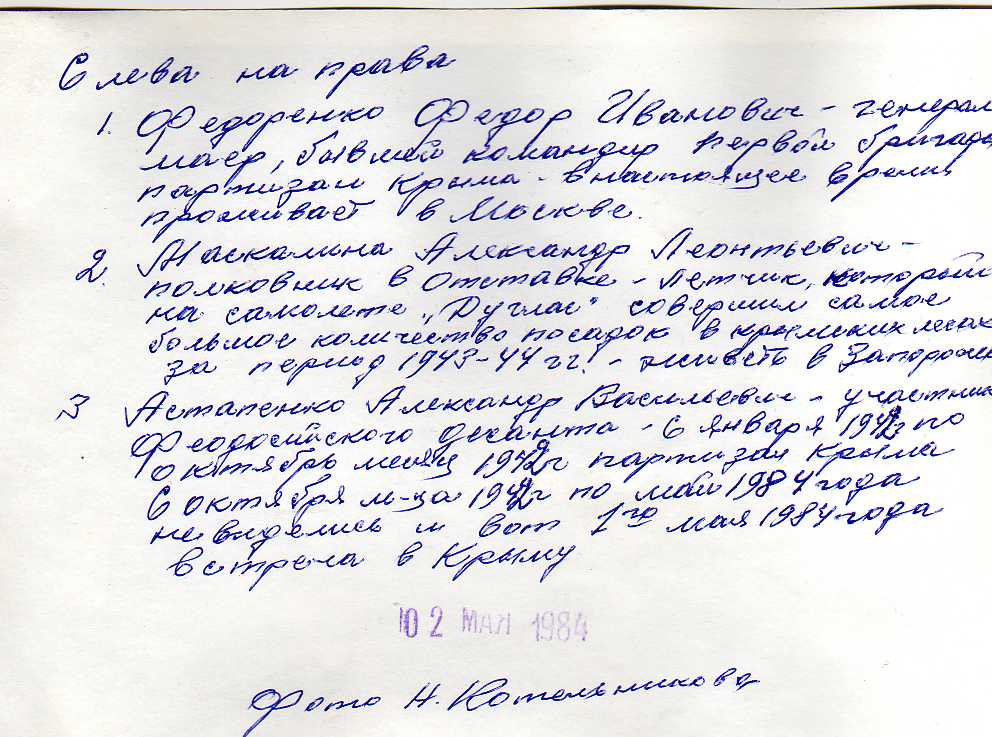 Слева на права
1. Федоренко Федор Иванович - генерал
маер, бывшей командир первой бригады
партизан Крыма - внастоящее время
проживает в Москве.
2. Маскалина Александр Леонтьевич -
полковник в отставке - летчик, который
на самолете „Дуглас" совершил самое
большое количество посадок в крымских лесах
за период 1943-44 гг. - живеть в Запорожье
3 Астапенко Александр Васильевич - участник
Феодосийского десанта - с января 1942г по
октябрь месяц 1942г партизан Крыма
С октября м-ца 1942г по май 1984 года
невиделись и вот 1го мая 1984 года
встреча в Крыму
02 МАЯ 1984
Фото Н. Котельникова